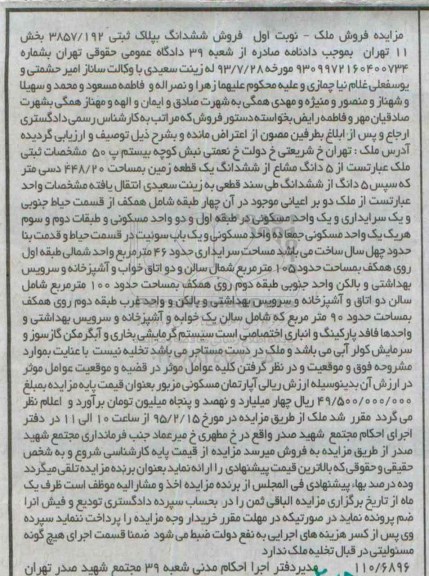 مزایده فروش ملک - نوبت اول فروش ششدانگ بپلاک ثبتی ۳۸۵۷/۱۹۲ بخش
۱۱ تهران بموجب دادنامه صادره از شعبه ۳۹ دادگاه عمومی حقوقی تهران بشماره
۹۳۰۹۹۷۲۱۶۰۴۰۰۷۳۴ مورخه ۹۳/۷/۲۸ له زینت سعیدی با وکالت ساناز امیر حشمتی و
یوسفعلی غلام نیا چمازی و علیه محکوم علیهما زهرا و نصراله و فاطمه مسعود و محمد و سهیلا
و شهناز و منصور و منیژه و مهدی همگی به شهرت صادق و ایمان و الهه و مهناز همگی بشهرت
صادقیان مهر و فاطمه رایض بخواسته دستور فروش که مراتب به کارشناس رسمی دادگستری
ارجاع و پس از ابلاغ بطرفین مصون از اعتراض مانده و بشرح ذیل توصیف و ارزیابی گردیده
آدرس ملک : تهران خ شریعتی خ دولت خ نعمتی نبش کوچه بیستم پ ۵۰ مشخصات ثبتی
ملک عبارتست از ۵ دانگ مشاع از ششدانگ یک قطعه زمین بمساحت ۴۴۸/۲۰ دسی متر
که سپس ۵ دانگ از ششدانگ طی سند قطعی به زینت سعیدی انتقال یافته مشخصات واحد
عبارتست از ملک دو بر اعیانی موجود در آن چهار طبقه شامل همکف از قسمت حیاط جنوبی
و یک سرایداری و یک واحد مسکونی در طبقه اول و دو واحد مسکونی و طبقات دوم و سوم
هریک یک واحد مسکونی جمعا ده واحد مسکونی و یک باب سوئیت در قسمت حیاط و قدمت بنا
حدود چهل سال ساخت می باشد مساحت سرایداری حدود ۴۶ مترمربع واحد شمالی طبقه اول
روی همکف بمساحت حدود ۱۰۵ مترمربع شمال سالن و دو اتاق خواب و آشپزخانه و سرویس
بهداشتی و بالکن واحد جنوبی طبقه دوم روی همکف بمساحت حدود ۱۰۰ مترمربع شامل
سالن دو اتاق و آشپزخانه و سرویس بهداشتی و بالکن و واحد غرب طبقه دوم روی همکف
بمساحت حدود ۹۰ متر مربع که شامل سالن یک خوابه و آشپزخانه و سرویس بهداشتی و
واحدها فاقد پارکینگ و انباری اختصاصی است سیستم گرمایشی بخاری و آبگرمکن گازسوز و
سرمایش کولر آبی می باشد و ملک در دست مستاجر می باشد تخلیه نیست با عنایت بموارد
مشروحه فوق و موقعیت و در نظر گرفتن کلیه عوامل موثر در قضیه و موقعیت عوامل موثر
در ارزش آن بدینوسیله ارزش ریالی آپارتمان مسکونی مزبور بعنوان قیمت پایه مزایده بمبلغ
۴۹/۵۰۰/۰۰۰/۰۰۰ ریال چهار میلیارد و نهصد و پنجاه میلیون تومان برآورد و اعلام نظر
می گردد مقرر شد ملک از طریق مزایده در مورخ ۹۵/۲/۱۵ از ساعت ۱۰ الی ۱۱ در دفتر
اجرای احکام مجتمع شهید صدر واقع در خ مطهری خ میرعماد جنب فرمانداری مجتمع شهید
صدر از طریق مزایده به فروش میرسد مزایده از قیمت پایه کارشناسی شروع و به شخص
حقیقی و حقوقی که بالاترین قیمت پیشنهادی را ارائه نماید بعنوان برنده مزایده تلقی میگردد
و ده درصد بها، پیشنهادی فی المجلس از برنده مزایده اخذ و مشارالیه موظف است ظرف یک
ماه از تاریخ برگزاری مزایده الباقی ثمن را در بحساب سپرده دادگستری تودیع و فیش آنرا
ضم پرونده نماید در صورتیکه در مهلت مقرر خریدار وجه مزایده را پرداخت ننماید سپرده
وی پس از کسر هزینه های اجرایی به نفع دولت ضبط می شود ضمنا قسمت اجرای هیچ گونه
مسئولیتی در قبال تخلیه ملک ندارد
۱۱۰/۶۸۹۶ مدیردفتر اجرا احکام مدنی شعبه ۳۹ مجتمع شهید صدر تهران